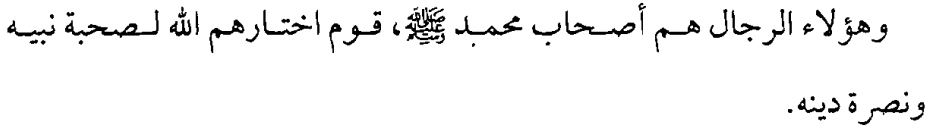 وهؤلاء الرجال هم أصحاب محمد ﷺ، قوم اختارهم الله لصحبة نبيه
ونصرة دينه.